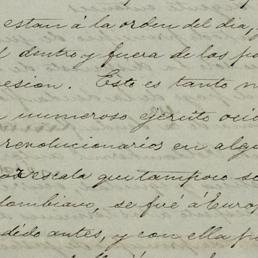 estan á la orden del dia,
dentro y fuera de las
esion. Esto es tanto
numeroso ejército
revolucionarios en
escala que tampoco
lombiano, se fué á Euro
dédo antes, y con ella